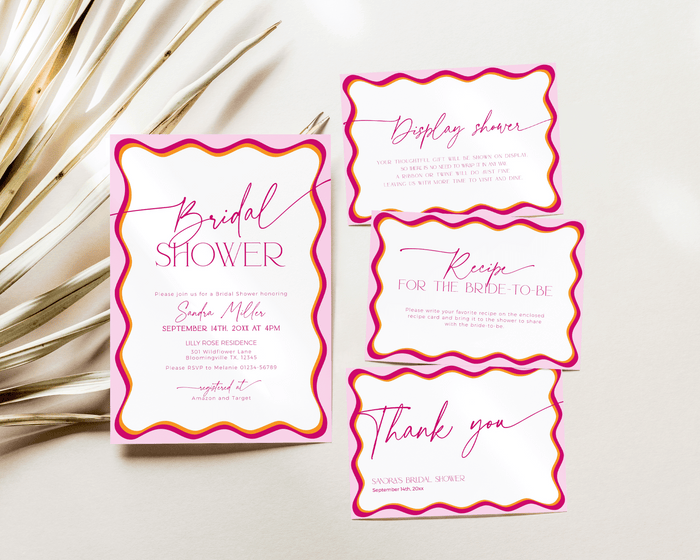 Bridal
SHOWER
Please join us for a Bridal Shower honoring
Sandra Miller
SEPTEMBER 14TH, 20XX AT 4PM
LILLY ROSE RESIDENCE
301 Wildflower Lane
Bloomingville TX, 12345
Please RSVP to Melanie 01234-56789
registered at
Amazon and Target
Display shower
YOUR THOUGHTFUL GIFT WILL BE SHOWN ON DISPLAY,
SO THERE IS NO NEED TO WRAP IT IN ANY WAY
A RIBBON OR TWINE WILL DO JUST FINE
LEAVING US WITH MORE TIME TO VISIT AND DINE
Recipe
FOR THE BRIDE-TO-BE
Please write your favorite recipe on the enclosed
recipe card and bring it to the shower to share
with the bride-to-be.
Thank you
SANDRA'S BRIDAL SHOWER
September 14th, 20xx